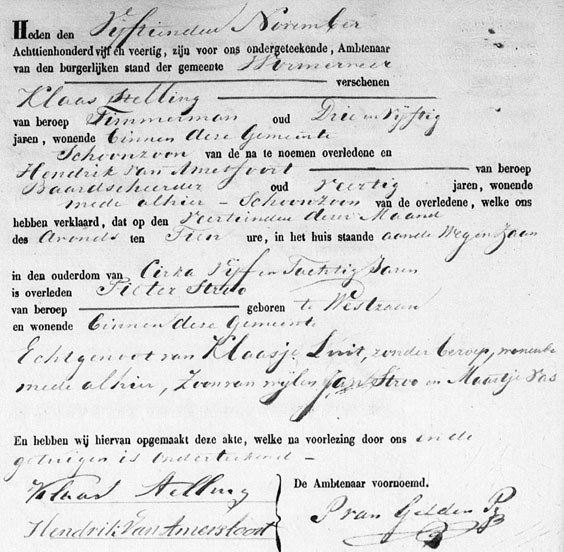 Heden den Vijftienden November
Achttienhonderd vijf en veertig, zijn voor ons ondergeteekende, Ambtenaar
van den burgerlijken stand der gemeente Wormerveer
verschenen
Klaas Stelling
van beroep Timmerman oud Drie en Vijftig
jaren, wonende binnen deze Gemeente
Schoonzoon van de na te noemen overledene en
Hendrik van Amersfoort van beroep
Baardscheerder oud Veertig jaren, wonende
mede alhier - Schoonzoon van de overledene, welke ons
hebben verklaard, dat op den Veertienden dezer Maand
des Avonds ten Tien ure, in het huis staande aan de Weg en Zaan
in den ouderdom van Cirka Vijf en Tachtig Jaren
is overleden Pieter Stroo
van beroep geboren te Westzaan
en wonende binnen deze Gemeente
Echtgenoot van Klaasje Smit, zonder beroep, wonende
mede alhier, Zoon van wijlen Jan Stroo en Maartje Vas
En hebben wij hiervan opgemaakt deze akte, welke na voorlezing door ons en de
getuigen is onderteekend
Klaas Stelling
De Ambtenaar voornoemd.
Hendrik van Amersfoort
P van Gelder Pz